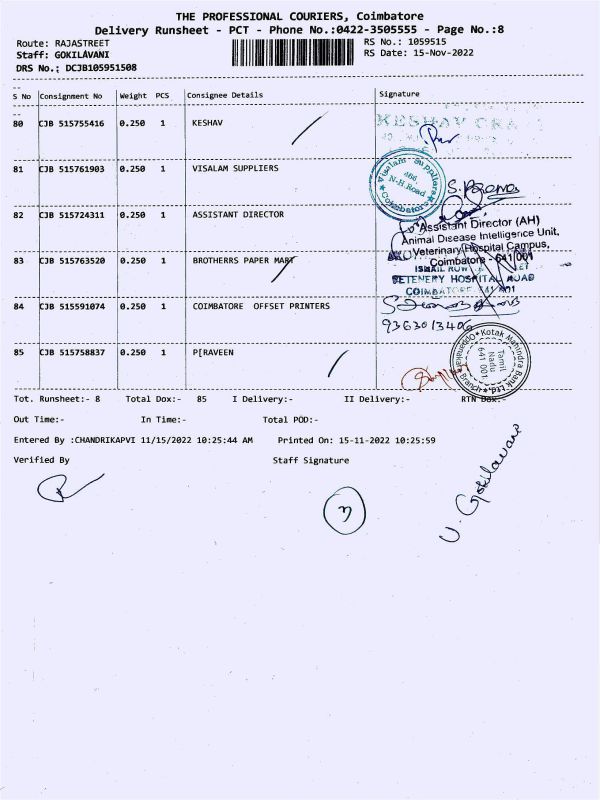 THE PROFESSIONAL COURIERS, Coimbatore
Delivery Runsheet - PCT - Phone No.:0422-3505555 - Page No.:8
Route: RAJASTREET RS No.: 1059515
Staff: GOKILAVANI RS Date: 15-Nov-2022
DRS No.; DCJB105951508
S No Consignment No Weight PCS Consignee Details Signature
80 CJB 515755416 0.250 1 KESHAV
KESHAV
81 CJB 515761903 0.250 1 VISALAM SUPPLIERS
Visalam Suppliers
466
N-H Road
Coimbatore
82 CJB 515724311 0.250 1 ASSISTANT DIRECTOR
Assistant Director (AH)
Animal Disease Intelligence Unit,
Veterinary Hospital Campus,
Coimbatore - 641 001
83 CJB 515763520 0.250 1 BROTHERRS PAPER MART
HOSPITAL ROAD
84 CJB 515591074 0.250 1 COIMBATORE OFFSET PRINTERS
85 CJB 515758837 0.250 1 P[RAVEEN
Kotak Mahindra Bank Ltd
Branch
Tamil
Nadu
641 001
Tot. Runsheet:- 8 Total Dox:- 85 I Delivery:- II Delivery:- RTN Dox:-
Out Time:- In Time:- Total POD:-
Entered By :CHANDRIKAPVI 11/15/2022 10:25:44 AM Printed On: 15-11-2022 10:25:59
Verified By Staff Signature
U. Gokilavani